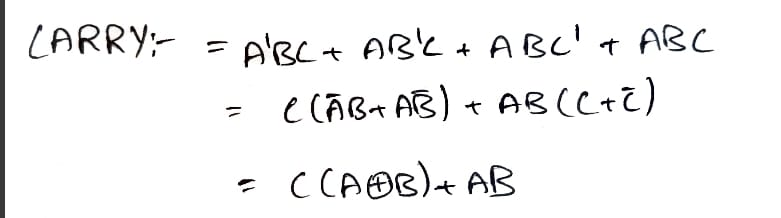 CARRY:- = A'BC + AB'C + ABC' + ABC
= C(ĀB+AB̄) + AB(C+C̄)
= C(A⊕B)+AB